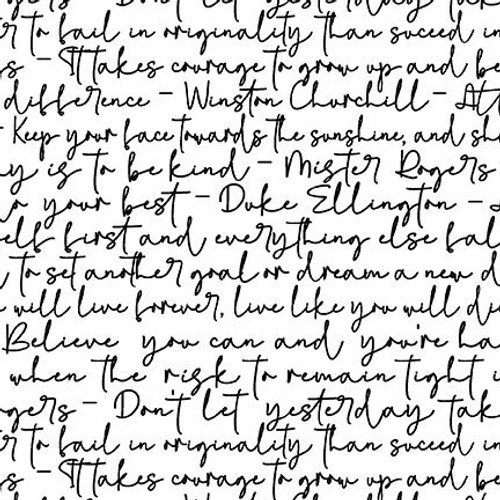 Don't let yesterday tak
r to fail in originality than suceed in
rs - It takes courage to grow up and be
difference - Winston Churchill - Att
Keep your face towards the sunshine, and sh
y is to be kind - Mister Rogers
o your best - Duke Ellington -
elf first and everything else fal
to set another goal or dream a new d
will live forever, live like you will di
Believe you can and you're ha
when the risk to remain tight i
ogers - Don't let yesterday tak
r to fail in originality than suceed in
rs - It takes courage to grow up and be
difference - Winston Churchill - Att